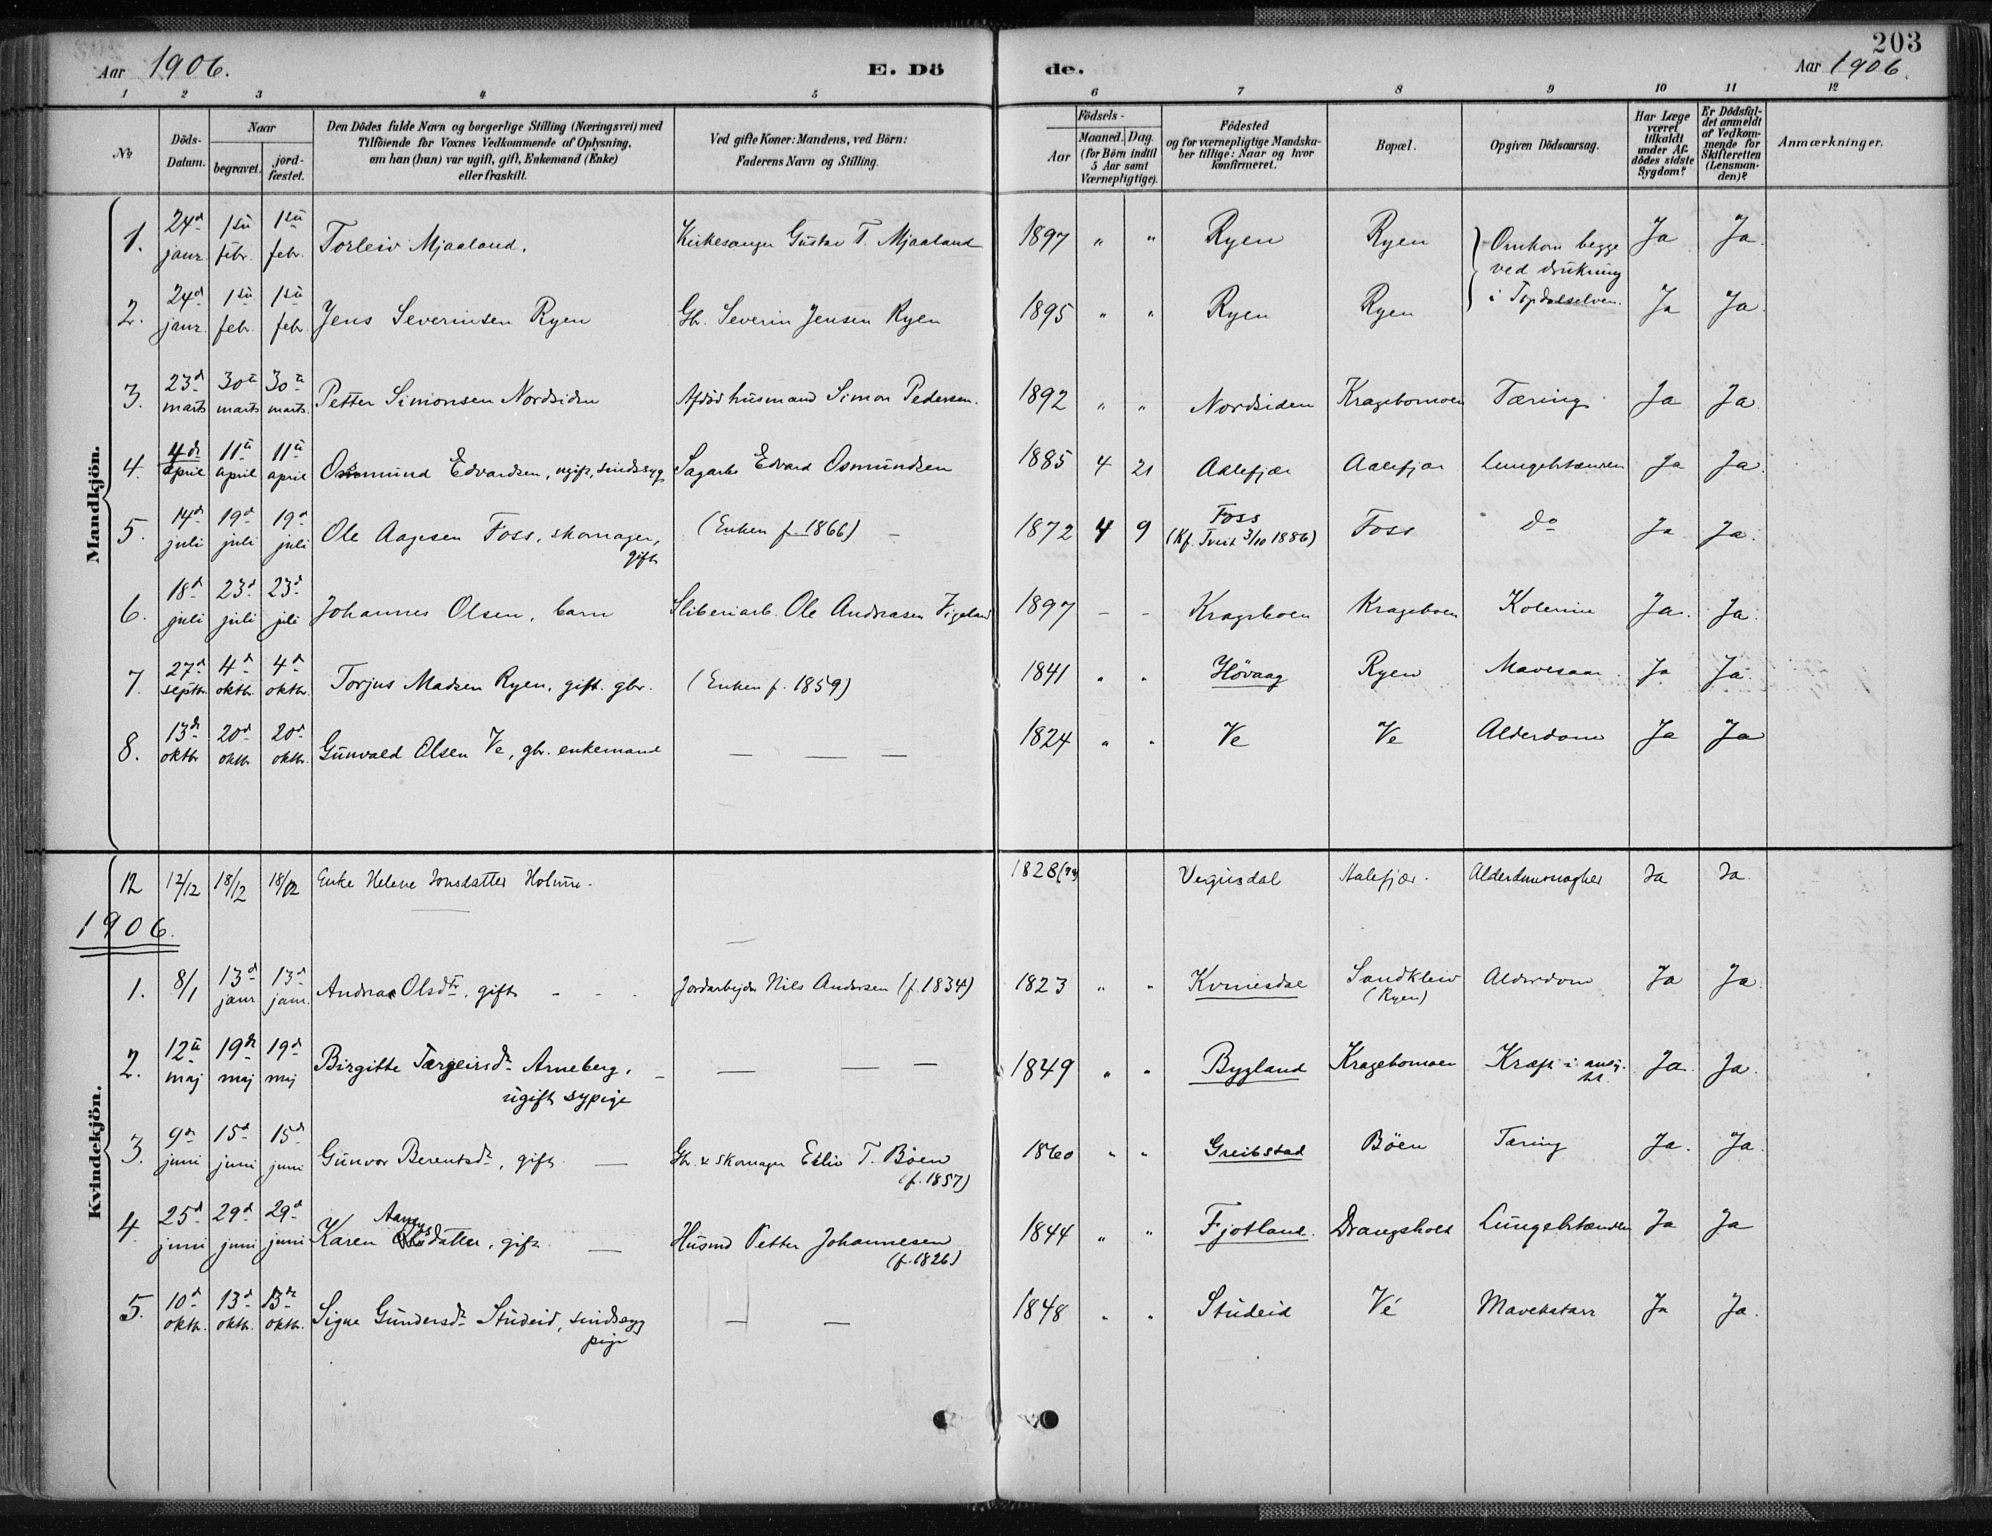 203
Aar 1906. E. Dö de. Aar 1906.
1 2 3 4 5 6 7 8 9 10 11 12
№ Döds-Datum. Naar begravet. jord-fæstet. Den Dödes fulde Navn og borgerlige Stilling (Næringsvei) med Tilföiende for Voxnes Vedkommende af Oplysning, om han (hun) var ugift, gift, Enkemand (Enke) eller fraskilt. Ved gifte Koner: Mandens, ved Börn: Faderens Navn og Stilling. Födsels- Aar Maaned. Dag. (for Börn indtil 5 Aar samt Værnepligtige). Födested og for værnepligtige Mandskaber tillige: Naar og hvor konfirmeret. Bopæl. Opgiven Dödsaarsag. Har Læge været tilkaldt under Afdödes sidste Sygdom? Er Dödsfaldet anmeldt af Vedkommende for Skifteretten (Lensmanden)? Anmærkninger.
Mandkjön.
1. 24d janr. 1ste febr. 1ste febr. Torleiv Mjaaland. Kirkesanger Gustav T. Mjaaland 1897 " " Ryen Ryen Omkom begge ved drukning i Topdalselven. Ja Ja.
2. 24d janr. 1ste febr. 1ste febr. Jens Severinsen Ryen Gb. Severin Jensen Ryen 1895 " " Ryen Ryen Ja Ja.
3. 23d marts 30te marts 30te marts. Petter Simonsen Nordsiden Afdød husmand Simon Pedersen. 1892 " " Nordsiden Kragebomoen Tæring. Ja Ja.
4. 4de april 11te april 11te april Osmund Edvardsen, ugift, sindssyg Sagarb. Edvard Osmundsen 1885 4 21 Aalefjær Aalefjær Lungebetændelse Ja Ja.
5. 14d juli 19d juli 19d juli Ole Aagesen Foss, skomager, gift (Enken f. 1866) 1872 4 9 Foss (Kf. Tveit 3/10 1886) Foss Do Ja Ja.
6. 18d juli 23d juli 23d juli Johannes Olsen, barn Sliberiarb. Ole Andreasen Vigeland 1897 - - Krageboen Krageboen Kolerine Ja. Ja.
7. 27d septbr. 4d oktbr. 4d oktbr. Torjus Madsen Ryen, gift. gbr. (Enken f. 1859) 1841 " " Høvaag Ryen Mavesaar. Ja Ja
8. 13de oktbr 20d oktbr 20d oktbr. Gunvald Olsen Ve, gbr. enkemand — — — 1824 " " Ve Ve Alderdom Ja Ja
Kvindekjön.
12 12/12 18/12 18/12 Enke Helene Jonsdatter Holme. 1828 Vegusdal Aalefjær. Ja Ja
1906.
1. 8/1 13d janr 13d janr. Andrea Olsdtr, gift Jordarbejder Nils Andersen (f. 1834) 1823 " " Kvinesdal Sandkleiv (Ryen) Alderdom Ja Ja.
2. 12te maj 19de maj 19de maj Birgitte Targeirsdr Arneberg, ugift sypige — — — 1849 " " Bygland Kragebomoen Kræft i Ja Ja.
3. 9de juni 15d juni 15d juni Gunvor Berentsdr, gift — Gb. & skomager T. Bøen (f. 1857) 1860 " " Greibstad Bøen Tæring Ja. Ja.
4. 25d juni 29d juni 29d juni Karen datter, gift — Husmd Petter Johannesen (f. 1826) 1844 " " Fjotland. Drangsholt Lungebetændelse Ja Ja
5. 10d oktbr. 13d oktbr. 13de oktbr. Signe Gundersdr Studeid, sindssyg pige — — 1848 " " Studeid Ve Ja Ja.